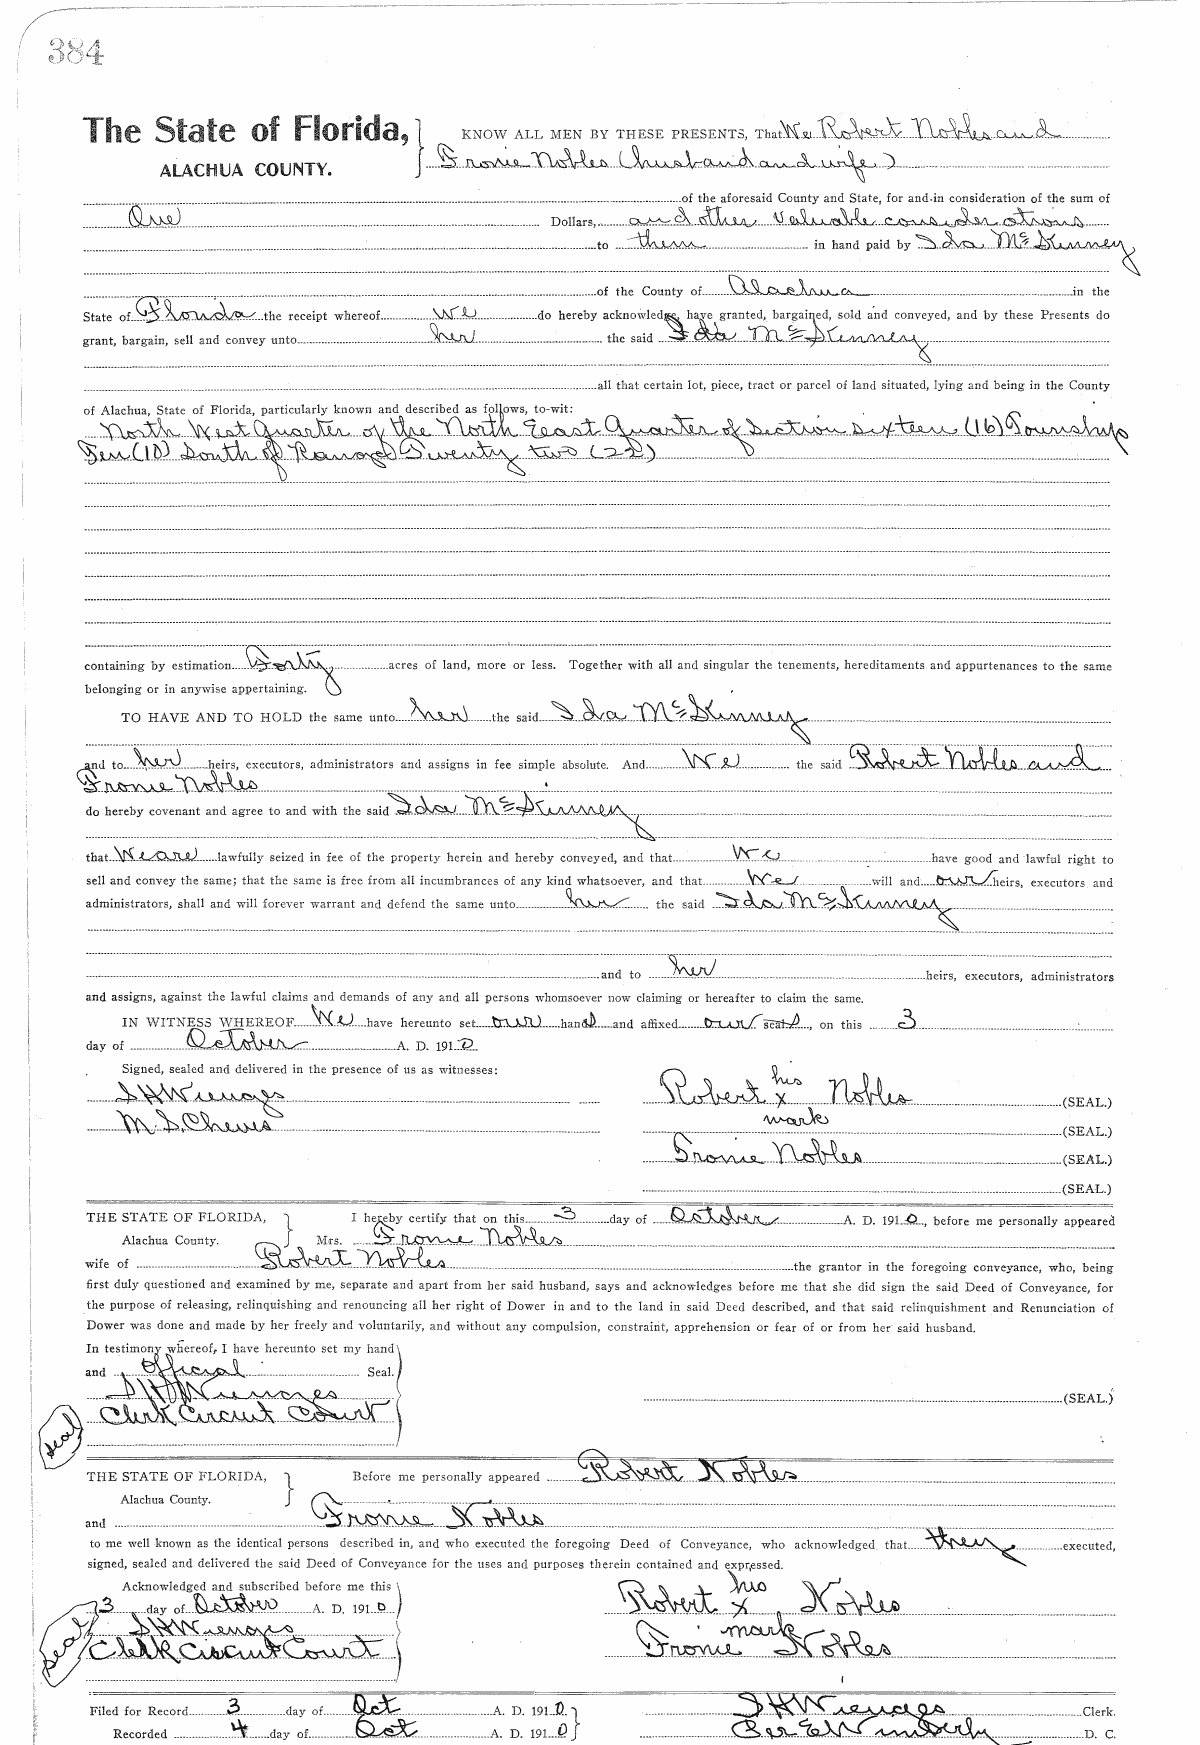 384
The State of Florida, KNOW ALL MEN BY THESE PRESENTS, That We Robert Nobles and
ALACHUA COUNTY. Fronie Nobles (husband and wife)
of the aforesaid County and State, for and in consideration of the sum of
One Dollars, and other valuable considerations
to them in hand paid by Ida McKinney
of the County of Alachua in the
State of Florida the receipt whereof we do hereby acknowledge, have granted, bargained, sold and conveyed, and by these Presents do
grant, bargain, sell and convey unto her the said Ida McKinney
all that certain lot, piece, tract or parcel of land situated, lying and being in the County
of Alachua, State of Florida, particularly known and described as follows, to-wit:
North West Quarter of the North East Quarter of Section Sixteen (16) Township
Ten (10) South of Range Twenty two (22)
containing by estimation Forty acres of land, more or less. Together with all and singular the tenements, hereditaments and appurtenances to the same
belonging or in anywise appertaining.
TO HAVE AND TO HOLD the same unto her the said Ida McKinney
and to her heirs, executors, administrators and assigns in fee simple absolute. And We the said Robert Nobles and
Fronie Nobles
do hereby covenant and agree to and with the said Ida McKinney
that We are lawfully seized in fee of the property herein and hereby conveyed, and that We have good and lawful right to
sell and convey the same; that the same is free from all incumbrances of any kind whatsoever, and that We will and our heirs, executors and
administrators, shall and will forever warrant and defend the same unto her the said Ida McKinney
and to her heirs, executors, administrators
and assigns, against the lawful claims and demands of any and all persons whomsoever now claiming or hereafter to claim the same.
IN WITNESS WHEREOF We have hereunto set our hands and affixed our seals, on this 3
day of October A. D. 1910.
Signed, sealed and delivered in the presence of us as witnesses:
S H Wienges Robert his x mark Nobles (SEAL.)
M. S. Cheves (SEAL.)
Fronie Nobles (SEAL.)
(SEAL.)
THE STATE OF FLORIDA, I hereby certify that on this 3 day of October A. D. 1910, before me personally appeared
Alachua County. Mrs. Fronie Nobles
wife of Robert Nobles the grantor in the foregoing conveyance, who, being
first duly questioned and examined by me, separate and apart from her said husband, says and acknowledges before me that she did sign the said Deed of Conveyance, for
the purpose of releasing, relinquishing and renouncing all her right of Dower in and to the land in said Deed described, and that said relinquishment and Renunciation of
Dower was done and made by her freely and voluntarily, and without any compulsion, constraint, apprehension or fear of or from her said husband.
In testimony whereof, I have hereunto set my hand
and official Seal.
S H Wienges (SEAL.)
seal Clerk Circuit Court
THE STATE OF FLORIDA, Before me personally appeared Robert Nobles
Alachua County.
and Fronie Nobles
to me well known as the identical persons described in, and who executed the foregoing Deed of Conveyance, who acknowledged that they executed,
signed, sealed and delivered the said Deed of Conveyance for the uses and purposes therein contained and expressed.
Acknowledged and subscribed before me this
3 day of October A. D. 1910 Robert his x mark Nobles
S H Wienges Fronie Nobles
seal Clerk Circuit Court
Filed for Record 3 day of Oct A. D. 1910. S H Wienges Clerk.
Recorded 4 day of Oct A. D. 1910 Per E Wimberly D. C.